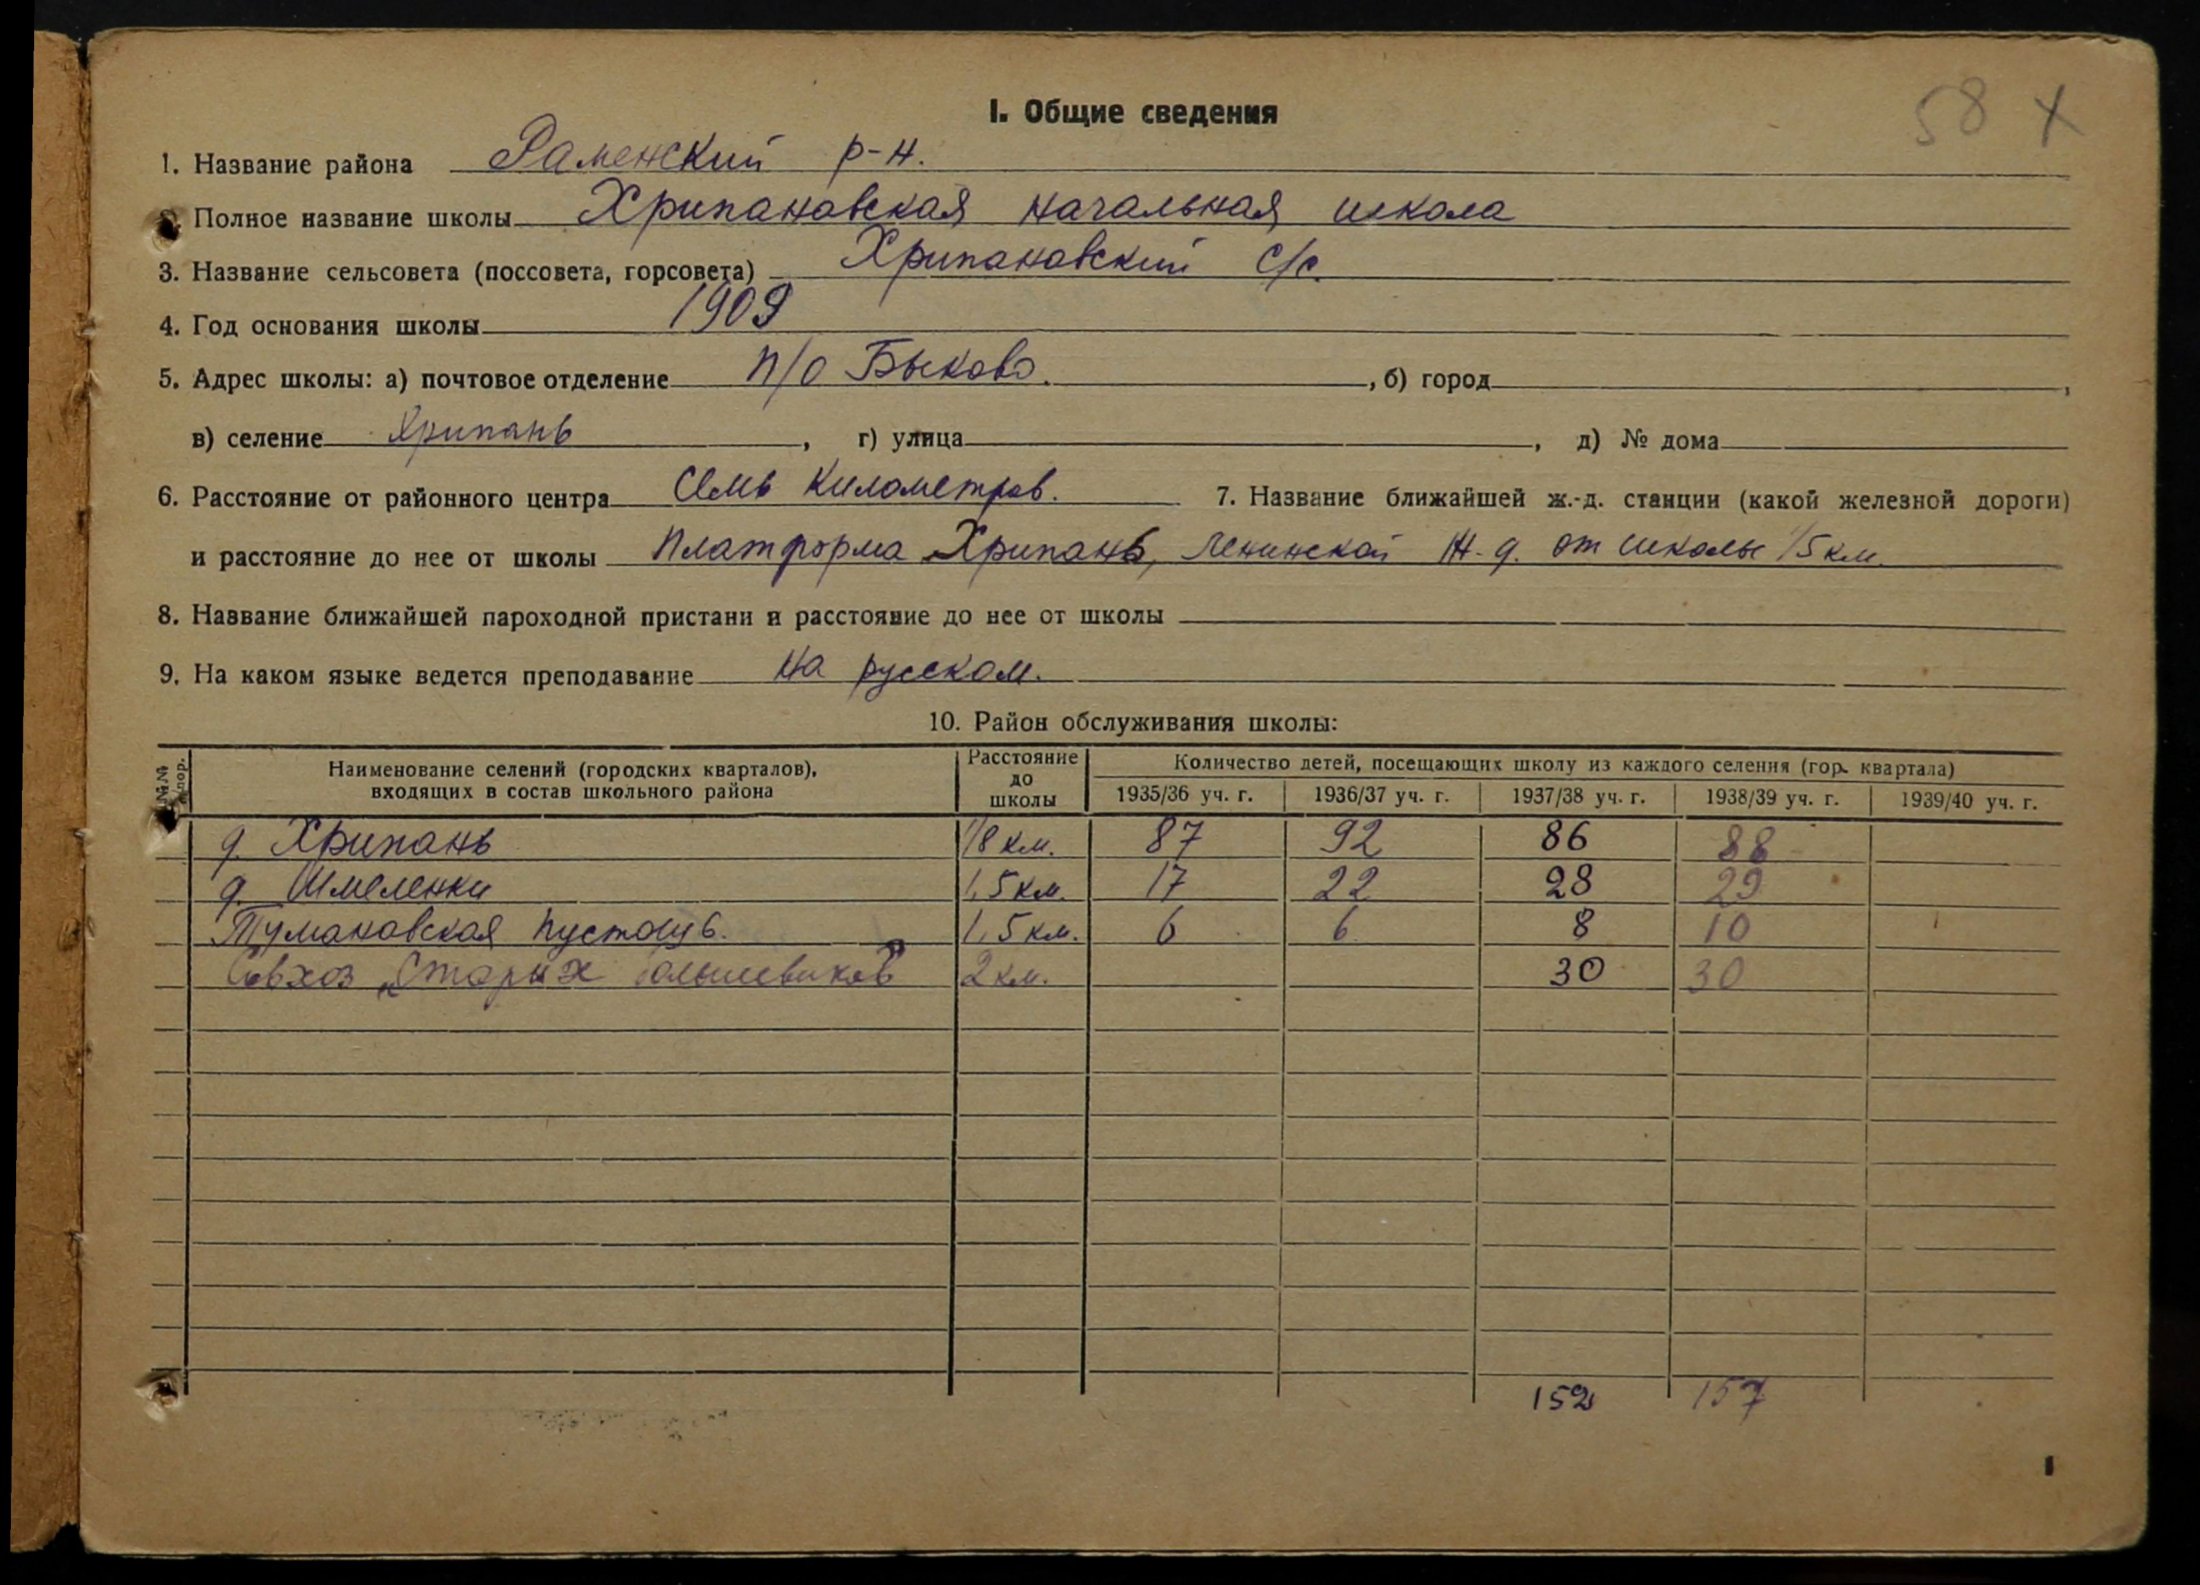 58 х
I. Общие сведения
1. Название района Раменский р-н.
Полное название школы Хрипановская начальная школа
3. Название сельсовета (поссовета, горсовета) Хрипановский с/с.
4. Год основания школы 1909
5. Адрес школы: а) почтовое отделение п/о Быково. , б) город ,
в) селение Хрипань , г) улица , д) № дома
6. Расстояние от районного центра Семь километров. 7. Название ближайшей ж.-д. станции (какой железной дороги)
и расстояние до нее от школы Платформа Хрипань, Ленинской ж-д. от школы 1/5 км.
8. Название ближайшей пароходной пристани и расстояние до нее от школы
9. На каком языке ведется преподавание на русском.
10. Район обслуживания школы:
№№ пор. Наименование селений (городских кварталов), входящих в состав школьного района Расстояние до школы Количество детей, посещающих школу из каждого селения (гор. квартала)
1935/36 уч. г. 1936/37 уч. г. 1937/38 уч. г. 1938/39 уч. г. 1939/40 уч. г.
д. Хрипань 1/8 км. 87 92 86 88
д. Шмеленки 1,5 км. 17 22 28 29
Тумановская пустошь. 1,5 км. 6 6 8 10
Совхоз „Старых большевиков" 2 км. 30 30
152 157
1